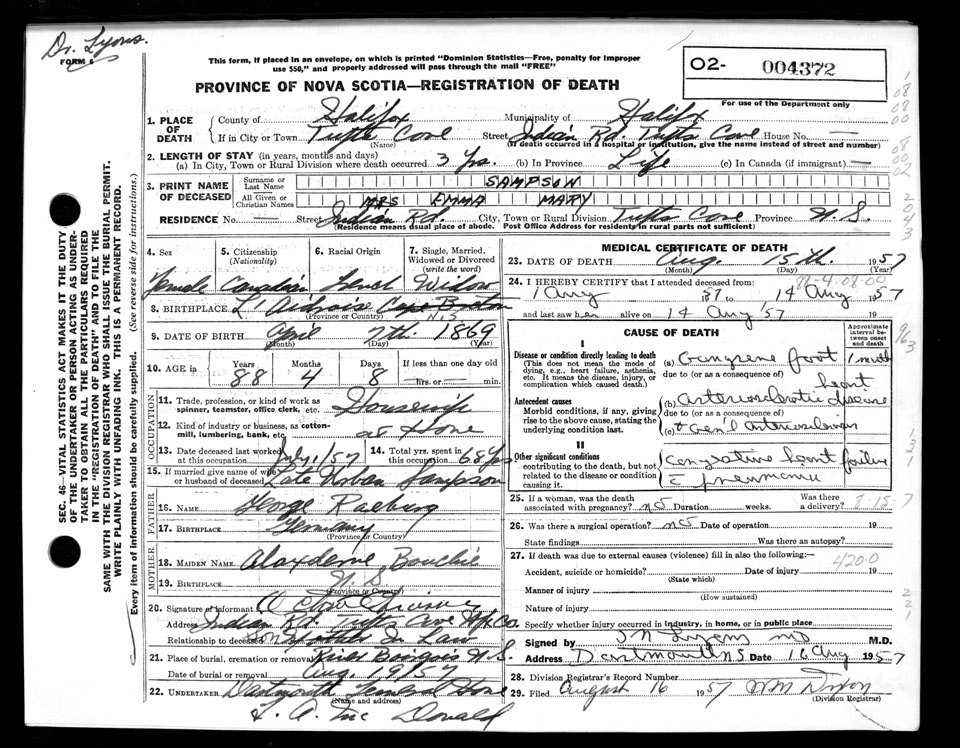 Dr. Lyons.
FORM 6
This form, if placed in an envelope, on which is printed "Dominion Statistics—Free, penalty for improper
use $50," and properly addressed will pass through the mail "FREE"
O2- 004372
For use of the Department only
PROVINCE OF NOVA SCOTIA—REGISTRATION OF DEATH
1. PLACE OF DEATH { County of Halifax Municipality of Halifax
If in City or Town Tufts Cove (Name) Street Indian Rd. Tufts Cove House No. —
(If death occurred in a hospital or institution, give the name instead of street and number)
2. LENGTH OF STAY (in years, months and days)
(a) In City, Town or Rural Division where death occurred 3 Yrs. (b) In Province Life (c) In Canada (if immigrant) —
3. PRINT NAME OF DECEASED { Surname or Last Name SAMPSON
All Given or Christian Names MRS EMMA MARY
RESIDENCE No. — Street Indian Rd. City, Town or Rural Division Tufts Cove Province N.S.
(Residence means usual place of abode. Post Office Address for residents in rural parts not sufficient)
4. Sex Female
5. Citizenship (Nationality) Canadian
6. Racial Origin French
7. Single, Married, Widowed or Divorced (write the word) Widow
8. BIRTHPLACE L'Ardoise Cape Breton N.S.
(Province or Country)
9. DATE OF BIRTH April 7th. 1869
(Month) (Day) (Year)
10. AGE in { Years 88 Months 4 Days 8 If less than one day
hrs. or — min.
OCCUPATION
11. Trade, profession, or kind of work as spinner, teamster, office clerk, etc. Housewife
12. Kind of industry or business, as cotton-mill, lumbering, bank, etc. at Home
13. Date deceased last worked at this occupation July 1/57 14. Total yrs. spent in this occupation 68 Yrs
15. If married give name of wife or husband of deceased Late Urban Sampson
FATHER
16. NAME George
17. BIRTHPLACE Germany
(Province or Country)
MOTHER
18. MAIDEN NAME
19. BIRTHPLACE N.S.
(Province or Country)
20. Signature of informant
Address Indian Rd. Tufts Cove Hfx Co.
Relationship to deceased In Law
21. Place of burial, cremation or removal River Bourgeois N.S.
Date of burial or removal Aug. 19/57
22. UNDERTAKER Dartmouth Funeral Home
(Name and address)
L. A. Mc Donald
MEDICAL CERTIFICATE OF DEATH
23. DATE OF DEATH Aug. 15th. 1957
(Month) (Day) (Year)
88-4-08-00
24. I HEREBY CERTIFY that I attended deceased from:
1 Aug 1957 to 14 Aug 1957
and last saw her alive on 14 Aug '57 19
CAUSE OF DEATH
Approximate interval between onset and death
I
Disease or condition directly leading to death
(This does not mean the mode of dying, e.g., heart failure, asthenia, etc. It means the disease, injury, or complication which caused death.)
(a) Gangrene foot 1 month
due to (or as a consequence of)
Antecedent causes
Morbid conditions, if any, giving rise to the above cause, stating the underlying condition last.
(b) Arteriosclerotic heart disease
due to (or as a consequence of)
(c) & Gen'l Arteriosclerosis
II
Other significant conditions
contributing to the death, but not related to the disease or condition causing it.
Congestive heart failure
c̄ pneumonia
25. If a woman, was the death associated with pregnancy? no Duration weeks. Was there a delivery?
8-15-7
26. Was there a surgical operation? no Date of operation 19
State findings Was there an autopsy?
27. If death was due to external causes (violence) fill in also the following:—
420.0
Accident, suicide or homicide? Date of injury 19
(State which)
Manner of injury
(How sustained)
Nature of injury
Specify whether injury occurred in industry, in home, or in public place
Signed by M.D.
Address Dartmouth N.S. Date 16 Aug 1957
28. Division Registrar's Record Number
29. Filed August 16 1957 W M Dixon
(Division Registrar)
SEC. 46—VITAL STATISTICS ACT MAKES IT THE DUTY
OF THE UNDERTAKER OR PERSON ACTING AS UNDER-
TAKER TO OBTAIN ALL THE PARTICULARS REQUIRED
IN THE "REGISTRATION OF DEATH" AND TO FILE THE
SAME WITH THE DIVISION REGISTRAR WHO SHALL ISSUE THE BURIAL PERMIT.
WRITE PLAINLY WITH UNFADING INK. THIS IS A PERMANENT RECORD.
Every item of information should be carefully supplied. (See reverse side for instructions.)